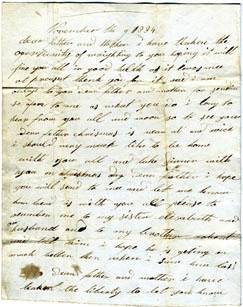 November th 9 1834
dear father and Mother i have taken the
oppertunity of wrighting to you hoping it will
find you all in good health as it leaves me
at present thank god for it and i am
to you dear father and mother for
so you to me as what you do i long to
hear from you all and to see you
Dear father christmas is near at and wich
i should very much like to be home
with you all and take dinner with
you on christmas day dear father i hope
you will send to me and let me know
how is with you all please to
remember me to my sister elizabeth and
husband and to my brother
him i hope he is geting on
much better then when i him
Dear father and mother i have
taken the liberty to let you know